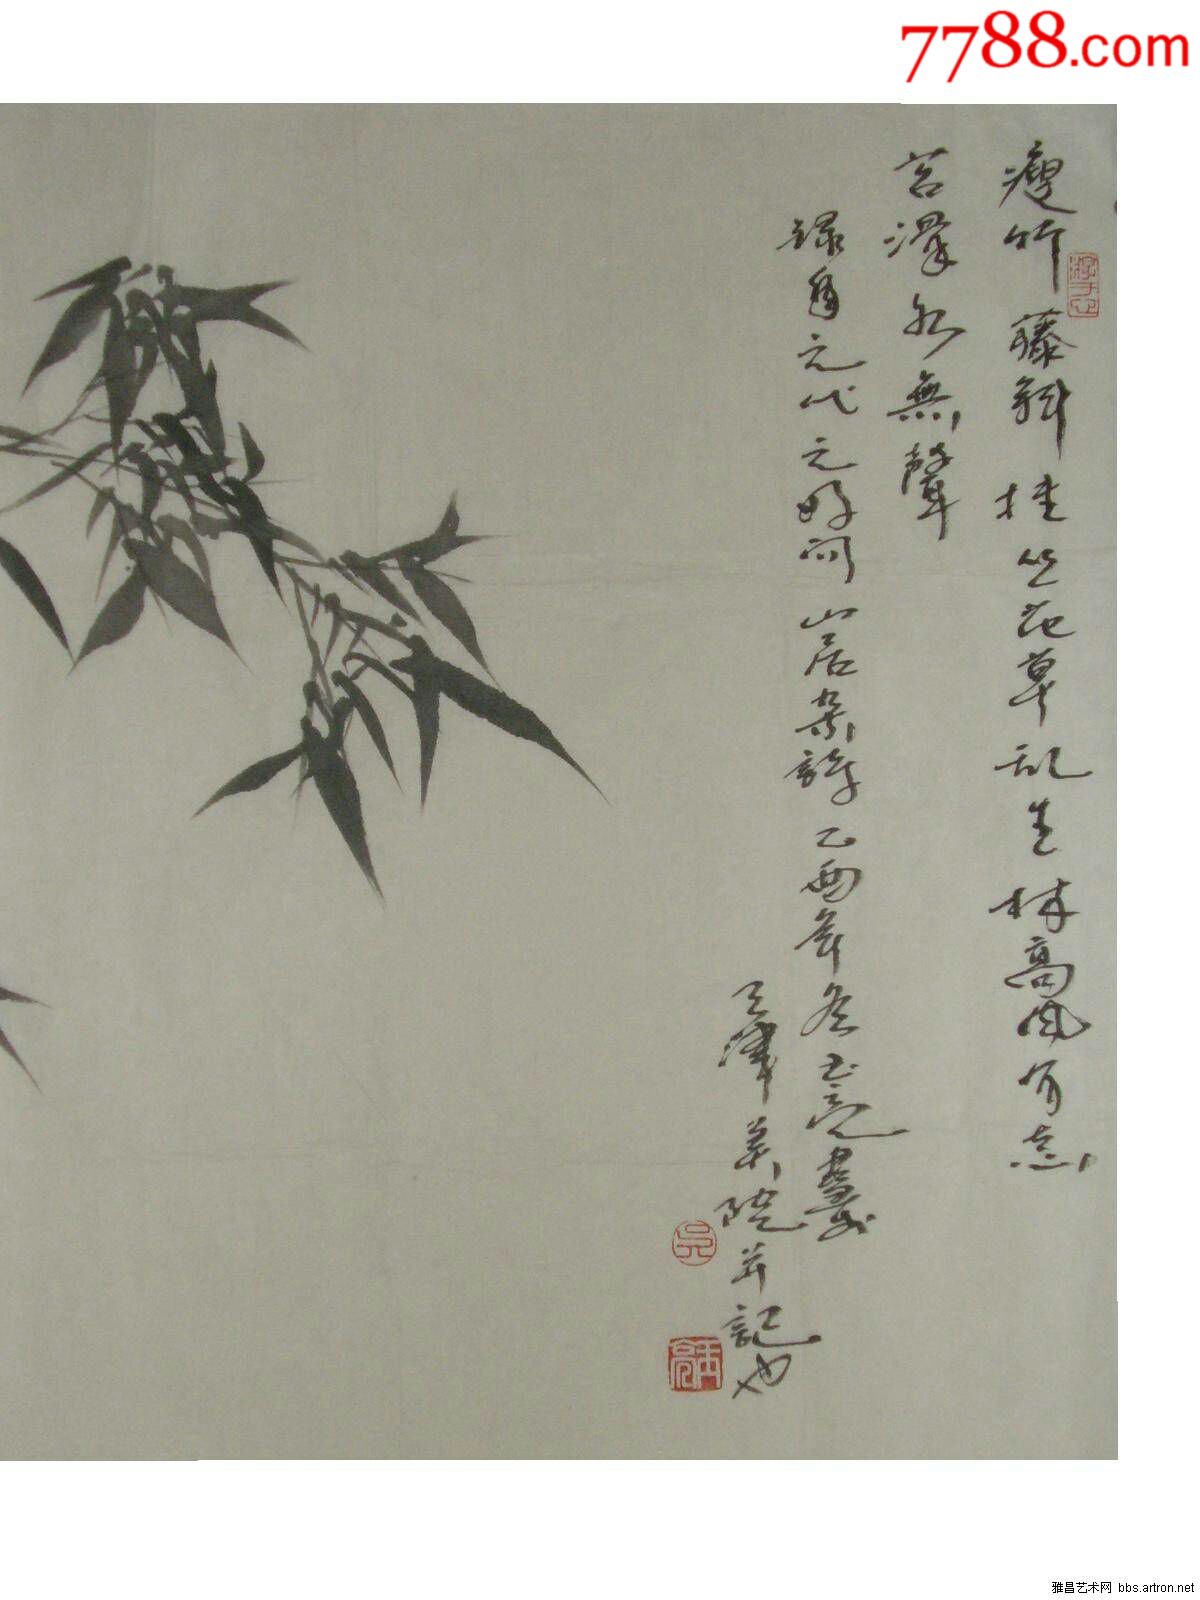 7788.com
瘦竹藤斜挂丛花草乱生林高风有态
苔滑水無聲
録自元代元好问山居杂詩乙酉年冬玉亮畫於
天津美院并記也
雅昌艺术网 bbs.artron.net